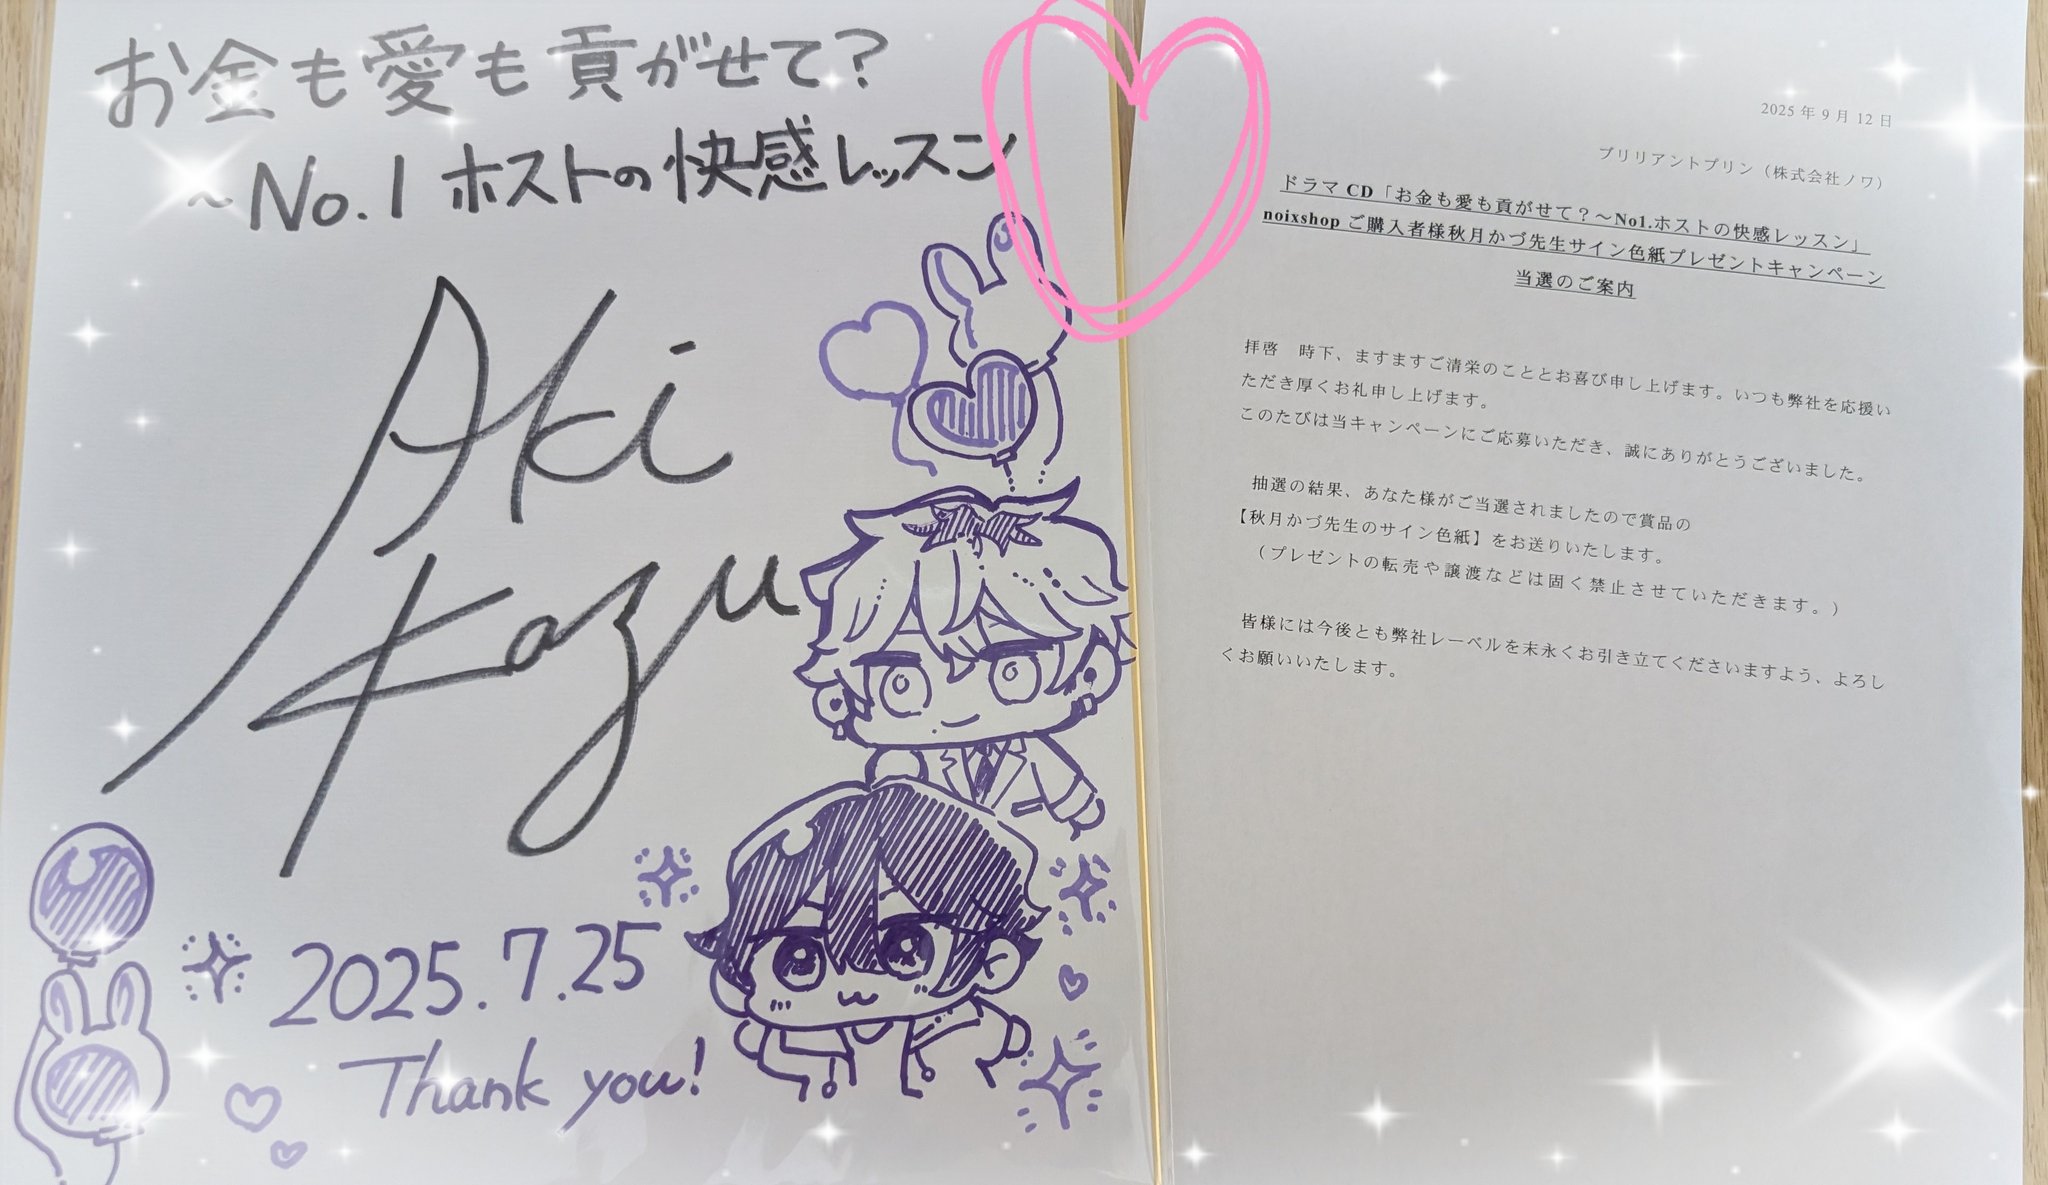 お金も愛も貢がせて？
～No.1 ホストの快感レッスン
Aki
Kazu
2025.7.25
Thank you!
2025 年 9 月 12 日
ブリリアントプリン（株式会社ノワ）
ドラマ CD「お金も愛も貢がせて？～No1.ホストの快感レッスン」
noixshop ご購入者様秋月かづ先生サイン色紙プレゼントキャンペーン
当選のご案内
拝啓　時下、ますますご清栄のこととお喜び申し上げます。いつも弊社を応援い
ただき厚くお礼申し上げます。
このたびは当キャンペーンにご応募いただき、誠にありがとうございました。
抽選の結果、あなた様がご当選されましたので賞品の
【秋月かづ先生のサイン色紙】をお送りいたします。
（プレゼントの転売や譲渡などは固く禁止させていただきます。）
皆様には今後とも弊社レーベルを末永くお引き立てくださいますよう、よろし
くお願いいたします。